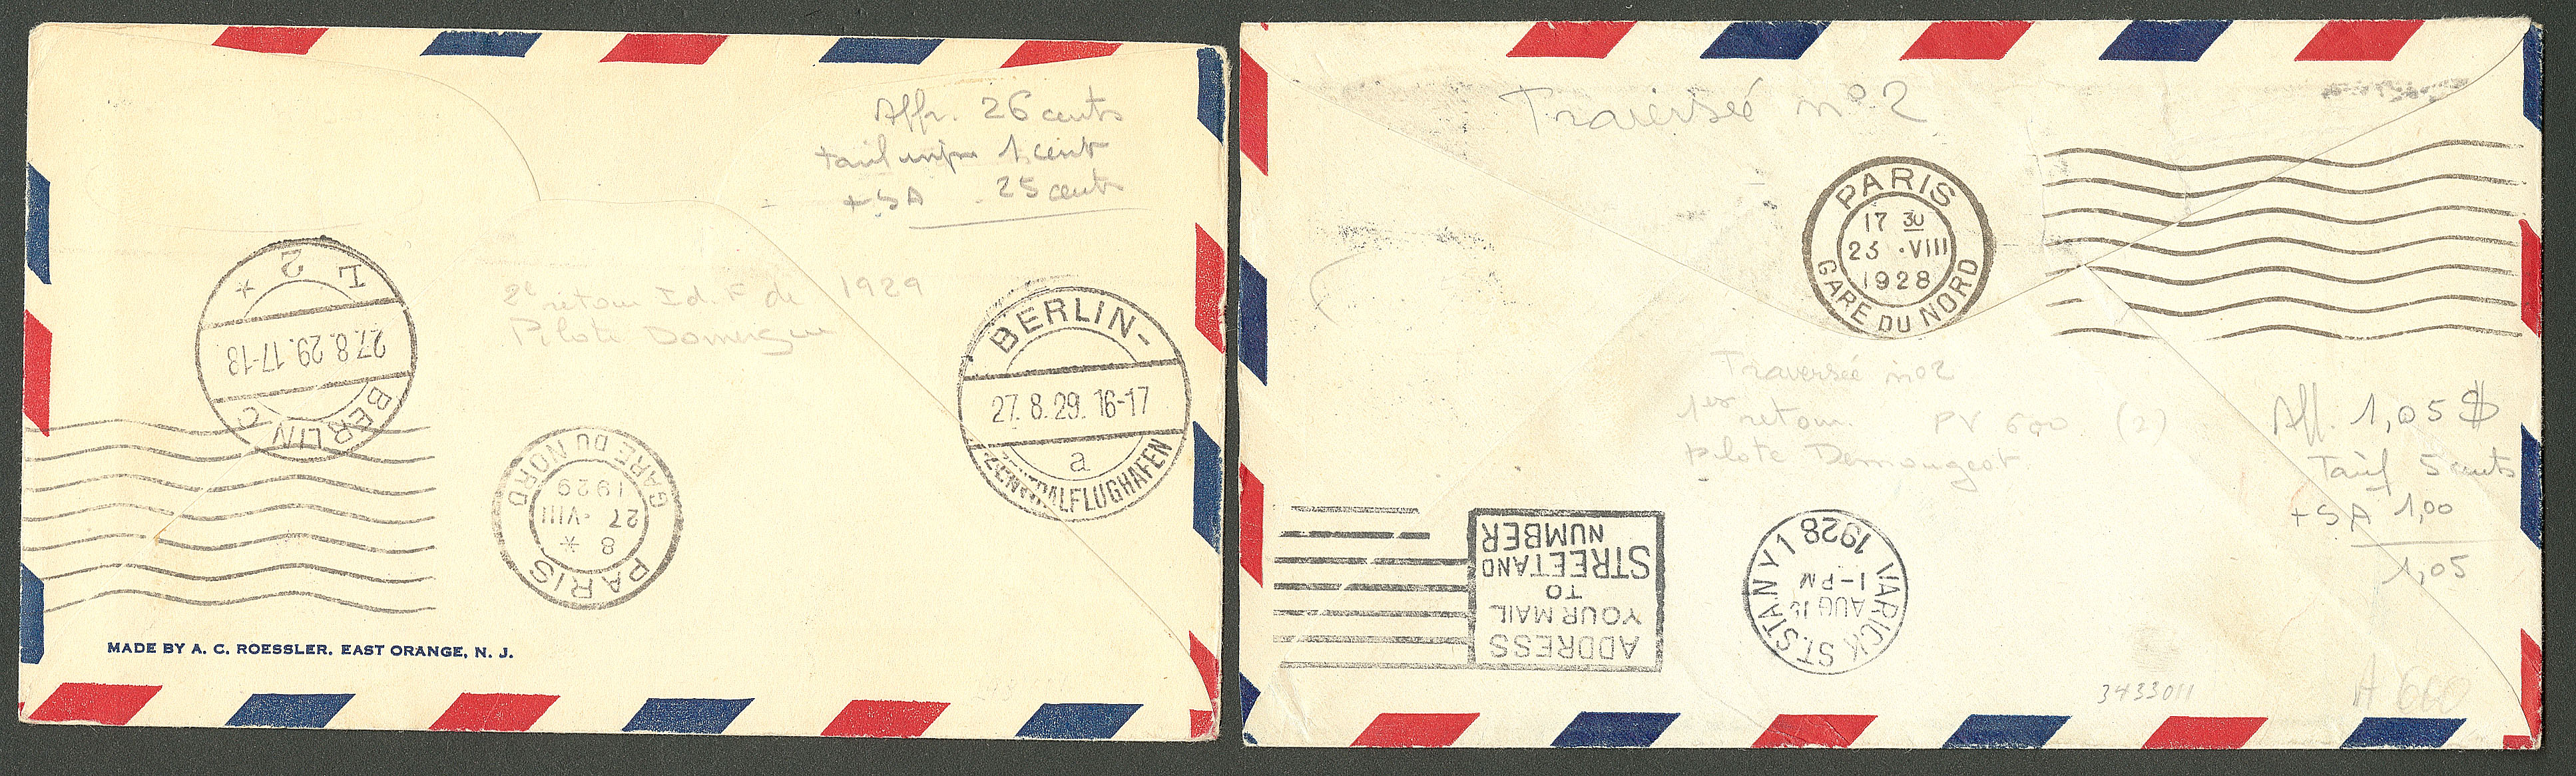 Affr. 26 cents
1 cent
+ SA 25 cents
L 2
*
27.8.29.17-18
BERLIN C
2e retour I.d.F de 1929
Pilote Domergue
BERLIN-
27.8.29. 16-17
a
ZENTRALFLUGHAFEN
PARIS
8 *
27 ·VIII
1929
GARE DU NORD
MADE BY A. C. ROESSLER. EAST ORANGE, N. J.
Traversée no 2
PARIS
17 30
23 ·VIII
1928
GARE DU NORD
Traversée no 2
1er retour. PV 600 (2)
pilote Demougeot
Aff. 1,05 $
Tarif 5 cents
+ SA 1,00
1,05
ADDRESS
YOUR MAIL
TO
STREET AND
NUMBER
VARICK ST. STA. N Y 1
AUG
1-PM
1928
3433011
A 600